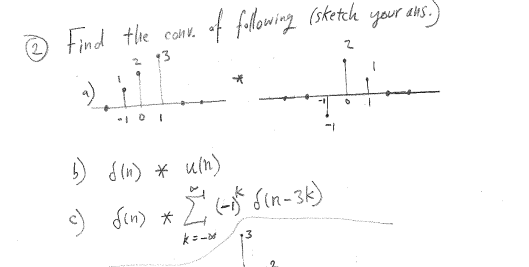 ② Find the conv. of following (sketch your ans.)
a) 1 2 3 * -1 2 1
-1 0 1 -1 0 1
b) δ(n) * u(n)
c) δ(n) * ∑ (-1)^k δ(n-3k)
k=-∞ ∞
3
2